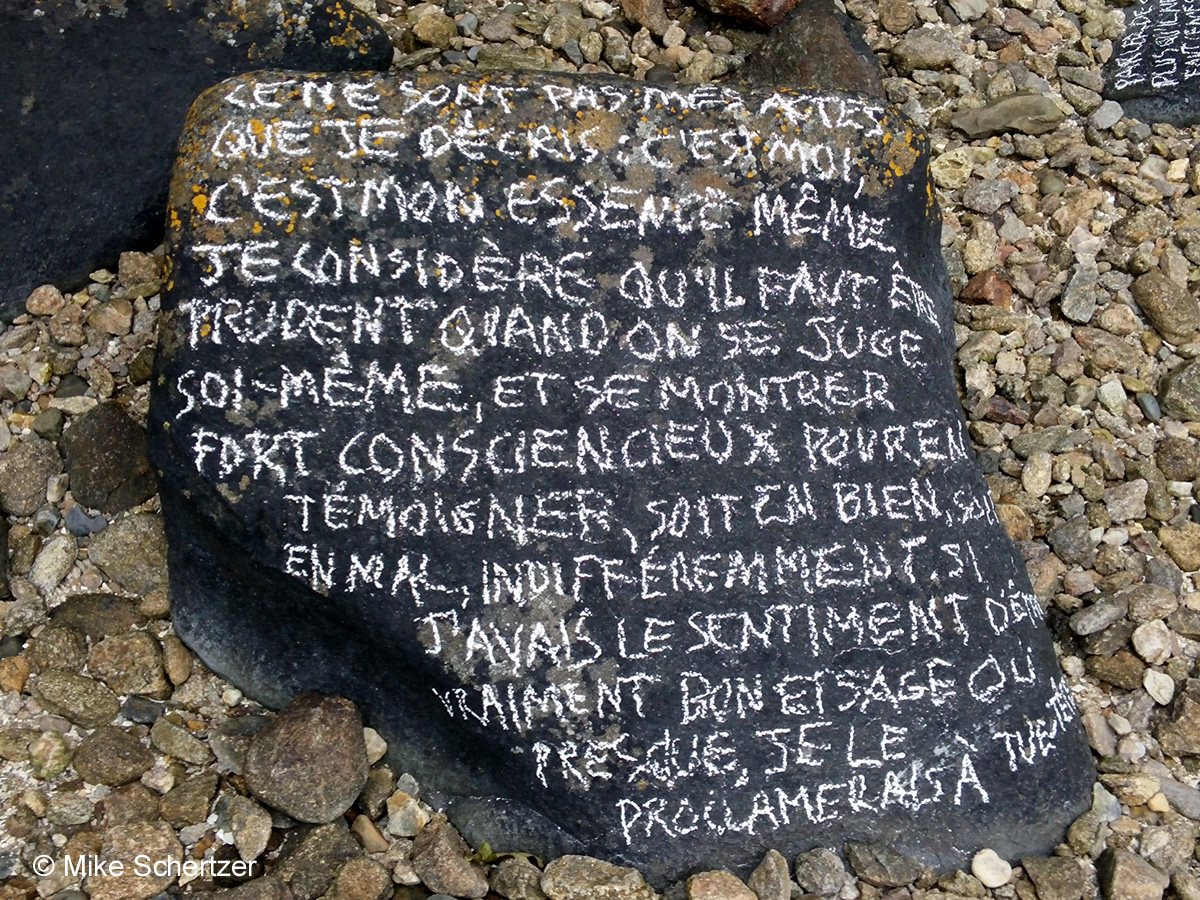 CE NE SONT PAS MES ACTES
QUE JE DÉCRIS : C'EST MOI,
C'EST MON ESSENCE MÊME.
JE CONSIDÈRE QU'IL FAUT ÊTRE
PRUDENT QUAND ON SE JUGE
SOI-MÊME, ET SE MONTRER
FORT CONSCIENCIEUX POUR EN
TÉMOIGNER, SOIT EN BIEN, SOIT
EN MAL, INDIFFÉREMMENT. SI
J'AVAIS LE SENTIMENT D'ÊTRE
VRAIMENT BON ET SAGE OU
PRESQUE, JE LE
PROCLAMERAIS À TUE-TÊTE
PARLER DE S
PLUS QU'IL N
© Mike Schertzer